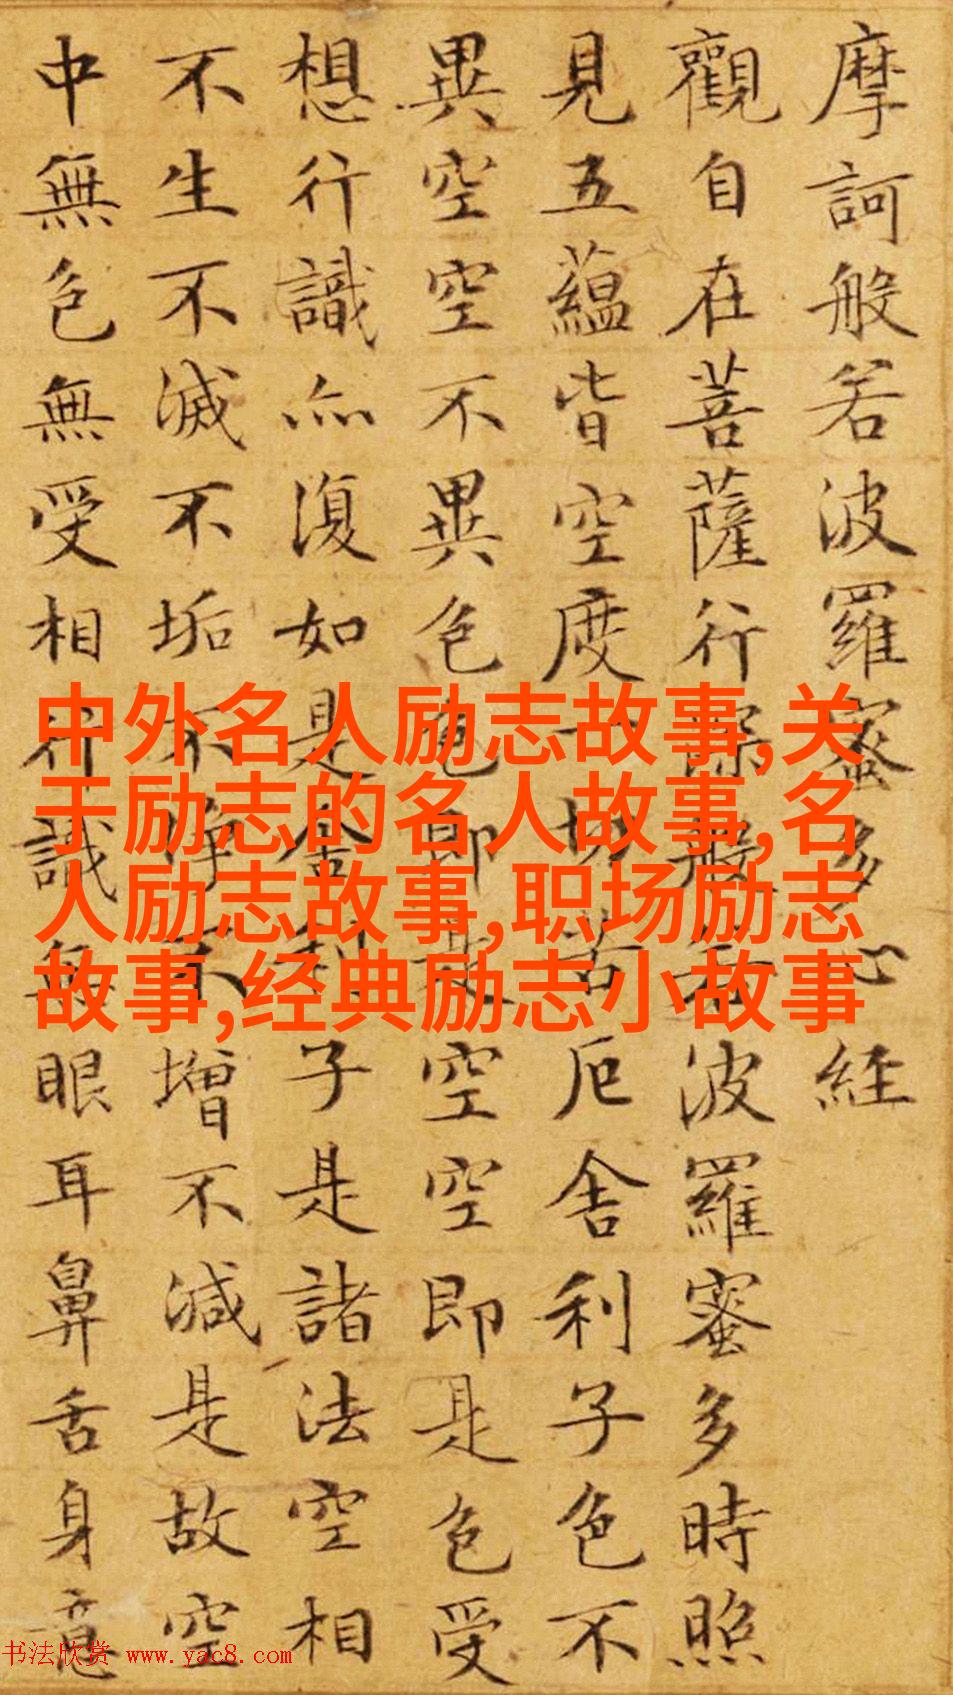 摩訶般若波羅蜜多心經
觀自在菩薩行深般若波羅蜜多時照
見五蘊皆空度一切苦厄舍利子色不
異空空不異色色即是空空即是色受
想行識亦復如是舍利子是諸法空相
不生不滅不垢不淨不增不減是故空
中無色無受相行識無眼耳鼻舌身意
中外名人励志故事,关
于励志的名人故事,名
人励志故事,职场励志
故事,经典励志小故事
书法欣赏 www.yac8.com